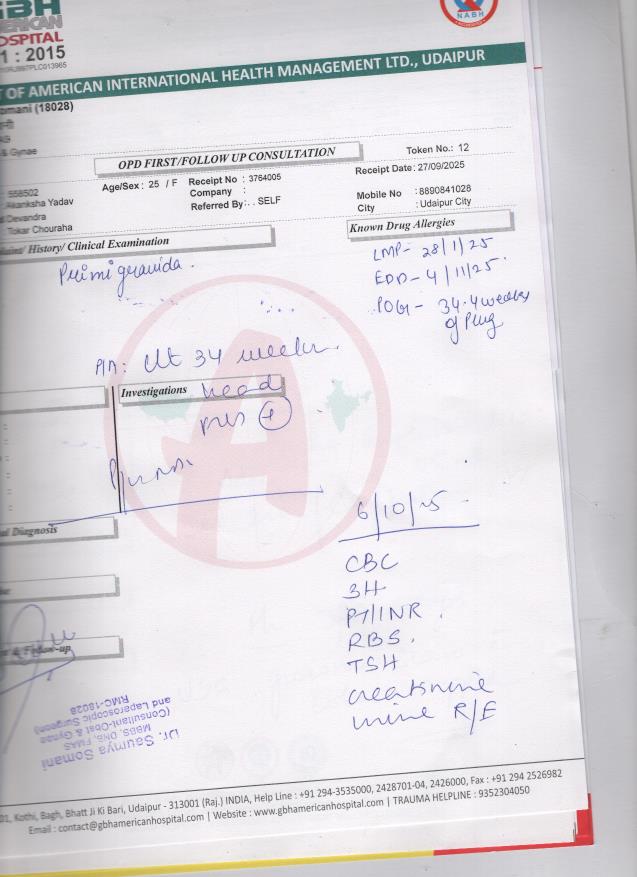 GBH
AMERICAN
HOSPITAL
1 : 2015
NABH
T OF AMERICAN INTERNATIONAL HEALTH MANAGEMENT LTD., UDAIPUR
omani (18028)
& Gynae
OPD FIRST/FOLLOW UP CONSULTATION
Token No.: 12
558502
Age/Sex : 25 / F
Receipt No : 3764005
Receipt Date : 27/09/2025
Akanksha Yadav
Company :
Mobile No : 8890841028
Devandra
Referred By : . SELF
City : Udaipur City
Tokar Chouraha
laint/ History/ Clinical Examination
Known Drug Allergies
Primigravida.
LMP- 28/1/25
EDD- 4/11/25.
POG- 34.4 weeks
of preg
P/A: Ut 34 weeks
Investigations
head
6/10/25
al Diagnosis
CBC
3H
PT/INR.
RBS.
TSH
creatinine
urine R/E
t & Follow-up
Dr. Saumya Somani
MBBS, DNB, FMAS
(Consultant-Obst & Gynae
and Laparoscopic Surgeon)
RMC-18028
01, Kothi, Bagh, Bhatt Ji Ki Bari, Udaipur - 313001 (Raj.) INDIA, Help Line : +91 294-3535000, 2428701-04, 2426000, Fax : +91 294 2526982
Email : contact@gbhamericanhospital.com | Website : www.gbhamericanhospital.com | TRAUMA HELPLINE : 9352304050